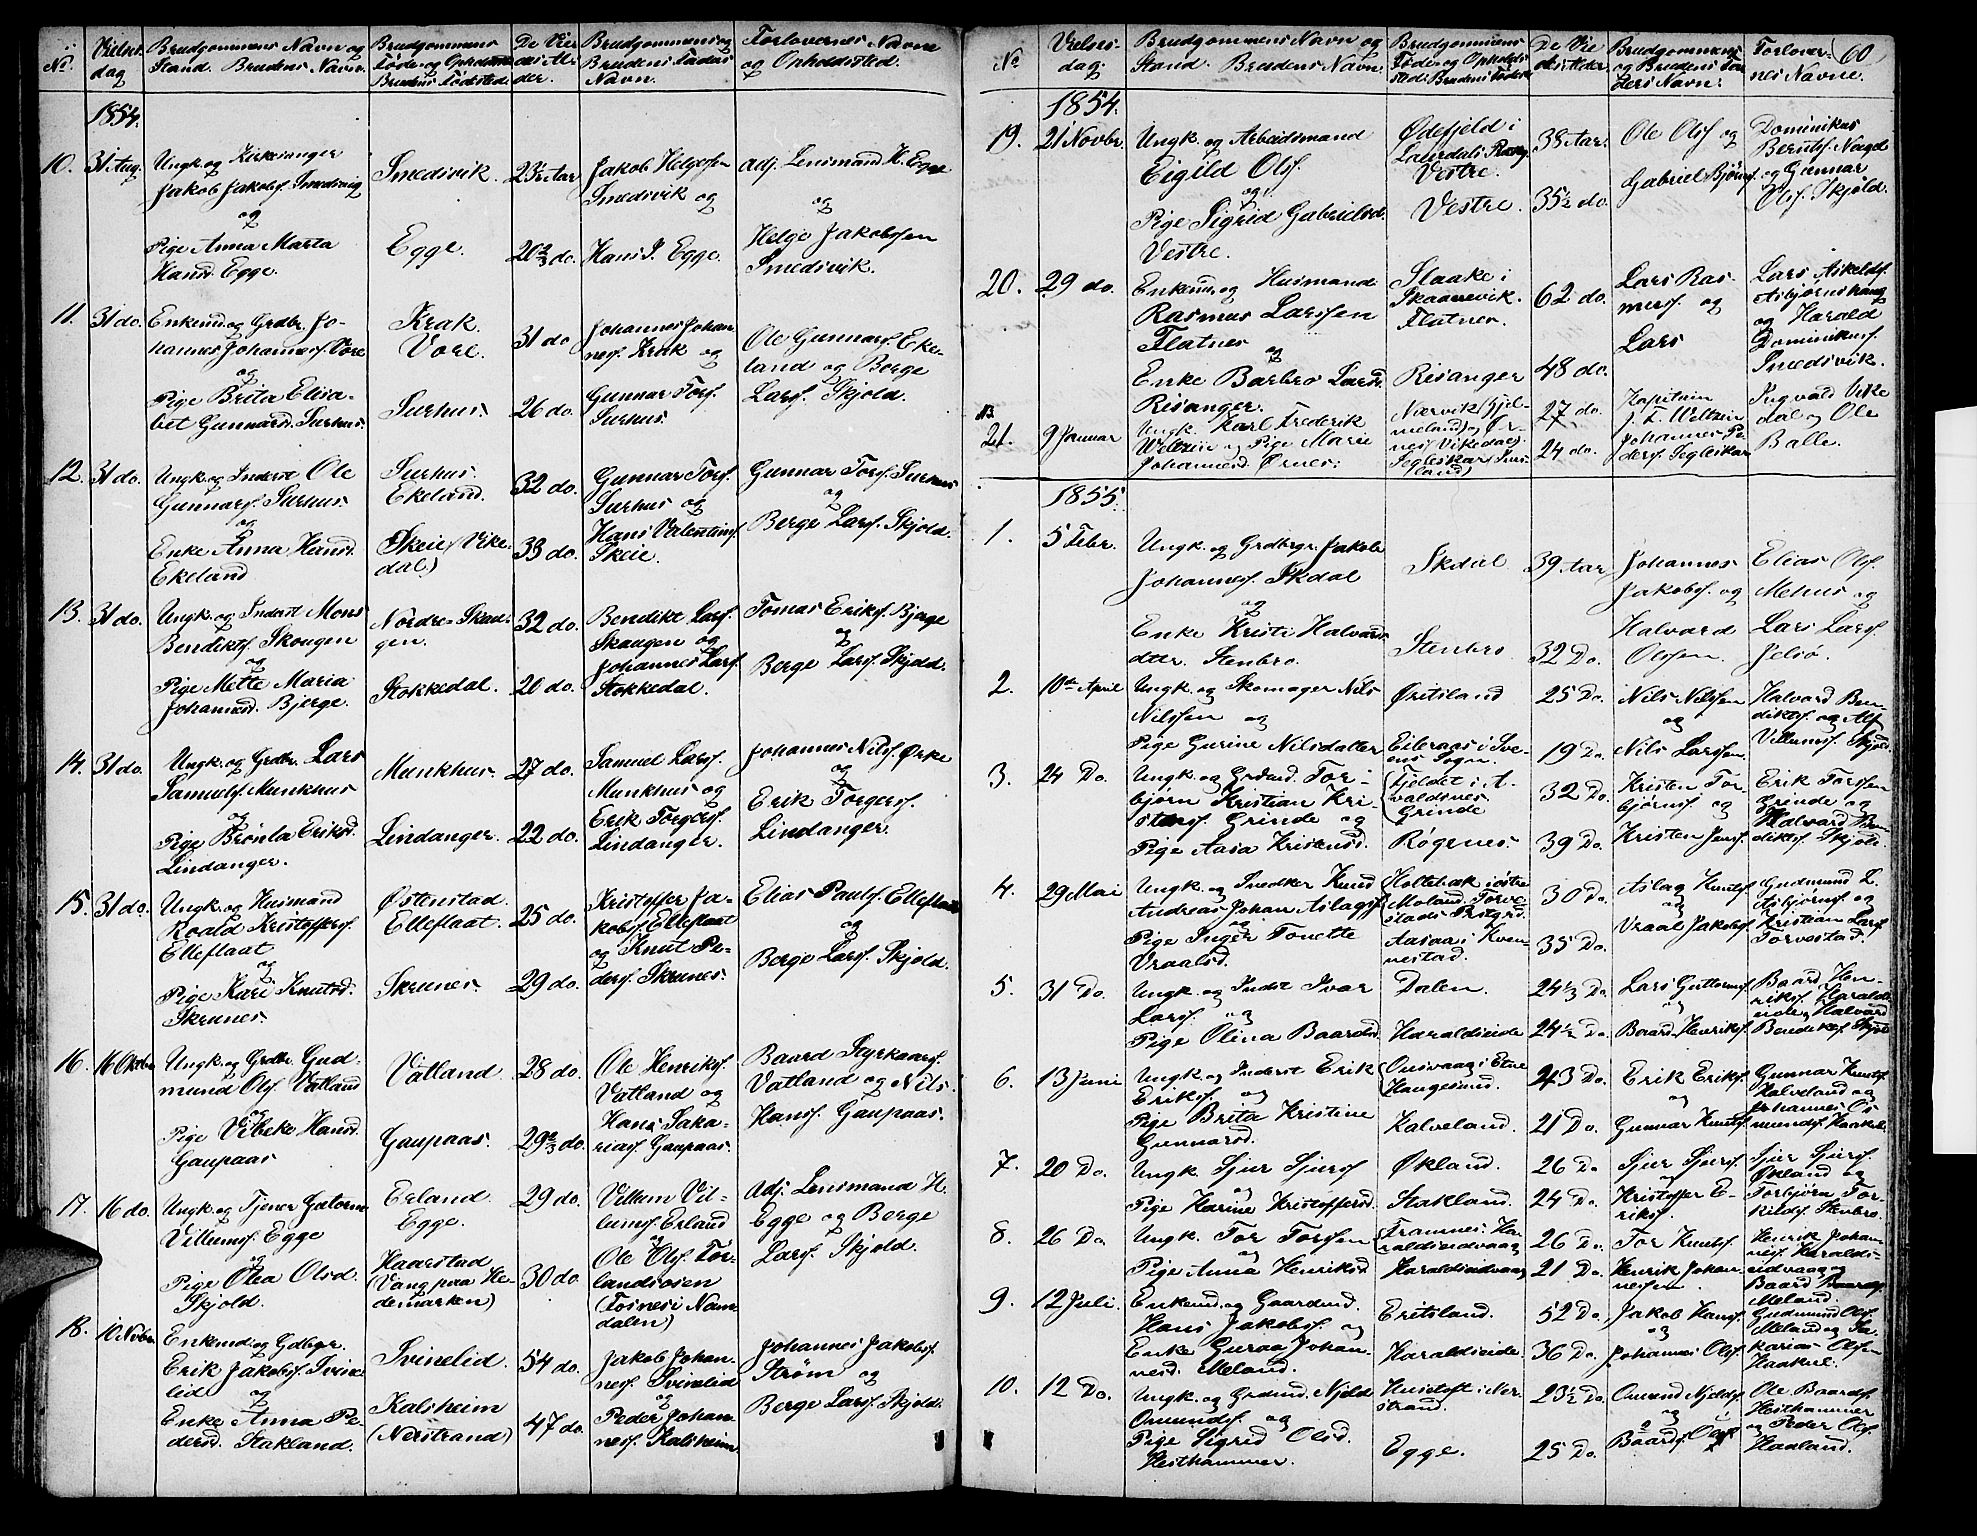 No.
Vielses-
dag
Brudgommens Navn og
Stand. Brudens Navn.
Brudgommens
Føde- og Opholdssted
Brudens Fødested
De Vie-
des Al-
der.
Brudgommens og
Brudens Faders
Navn.
Forlovernes Navne
og Opholdssted.
1854.
10. 31 Aug.
Ungk. og Kirkesanger
Jakob Jakobs. Smedsvig
og
Pige Anna Marta
Hansd. Egge.
Smedsvik.
Egge.
23½ Aar
20⅔ do.
Jakob Helgessen
Smedsvik og
Hans J. Egge.
Adj. Lensmand H. Egge
og
Helge Jakobssen
Smedsvik.
11. 31 do.
Enkemd. og Grdbr. Jo-
hannes Johannesf. Vore
og
Pige Brita Elisa-
bet Gunnarsd. Surhus.
Krak.
Vore.
Surhus.
31 do
26 do.
Johannes Johan-
nesf. Krak og
Gunnar Torsf.
Surhus.
Ole Gunnarsf. Eke-
land og Berge
Larsf. Skjold.
12. 31 do.
Ungk. og Inderst Ole
Gunnarsf. Surhus.
og
Enke Anna Hansd.
Ekeland
Surhus.
Ekeland.
Skeie (Vike-
dal)
32 do.
33 do.
Gunnar Torsf.
Surhus og
Hans Valentinsf.
Skeie.
Gunnar Torsf. Surhus
og
Berge Larsf. Skjold.
13. 31 do.
Ungk. og Inderst Mons
Bendiktsf. Skougen
og
Pige Mette Maria
Johannesd. Bjerge.
Nordre-Skau-
gen.
Stokkedal.
32 do.
20 do.
Bendikt Larsf.
Skaugen og
Johannes Larsf.
Stokkedal.
Tomas Eriksf. Bjerge
og
Berge Larsf. Skjold.
14. 31 do.
Ungk. og Grdbr. Lars
Samuelsf. Munkhus
og
Pige Brønla Eriksd.
Lindanger.
Munkhus.
Lindanger.
27 do.
22 do.
Samuel Larsf.
Munkhus og
Erik Torgersf.
Lindanger.
Johannes Nilsf. Ørke
og
Erik Torgersf.
Lindanger.
15. 31 do.
Ungk. og Husmand
Roald Kristoffersf.
Elleflaat
og
Pige Kari Knutsd.
Skrunes.
Østenstad.
Elleflaat.
Skrunes.
25 do.
29 do.
Kristoffer Ja-
kobsf. Elleflaat
og Knut Pe-
dersf. Skrunes.
Elias Paulsf. Elleflaat
og
Berge Larsf. Skjold.
16. 16 Oktbr
Ungk. og Grdbr. Gud-
mund Olsf. Vatland
og
Pige Vibeke Hansd.
Gaupaas
Vatland.
Gaupaas.
28 do.
29⅔ do.
Ole Henriksf.
Vatland og
Hans Saka-
riasf. Gaupaas.
Baard Styrkaarsf.
Vatland og Nils
Hansf. Gaupaas.
17. 16 do.
Ungk. og Tjener
Villumsf. Egge
og
Pige Olea Olsd.
Skjold.
Erland.
Egge.
Haarstad
(Vang paa He-
demarken)
29 do.
30 do.
Villum Vil-
lumsf. Erland
og
Ole Olsf. Tør-
landsøien
(Fosnes i Nam-
dalen)
Adj. Lensmand H.
Egge og Berge
Larsf. Skjold.
18. 10 Novbr
Enkemd. og Gdbgr.
Erik Jakobsf. Svine-
lid
og
Enke Anna Pe-
dersd. Stakland.
Svinelid.
Kalsheim
(Nerstrand)
54 do.
47 do.
Jakob Johan-
nesf. Svinelid
og
Peder Johan-
nesf. Kalsheim
Johannes Jakobsf.
Strøm og
Berge Larsf. Skjold.
60
No
Vielses-
dag.
Brudgommens Navn og
Stand. Brudens Navn.
Brudgommens
Føde- og Opholds-
sted. Brudens Fødested
De Vie-
des Alder.
Brudgommens
og Brudens Fa-
ders Navn.
Forlover-
nes Navne.
1854.
19. 21 Novbr
Ungk. og Arbeidsmand
Eigild Olsf.
og
Pige Sigrid Gabrielsd.
Vestre.
Ødefjeld i
Laurdals Præg
Vestre.
Vestre.
38 Aar.
35½ do.
Ole Olsf. og
Gabriel Bjørnsf.
Dominikus
Berntsf. Nagd
og Gunnar
Olsf. Skjold.
20. 29 do.
Enkemd. og Husmand
Rasmus Larssen
Flatnes
og
Enke Barbro Larsd.
Risanger.
Staake i
Skaanevik.
Flatnes.
Risanger
62 do.
48 do.
Lars Ras-
musf. og
Lars
Lars Askeldsf.
Asbjørnshaug
og Harald
Dominikusf.
Smedsvik.
NB
21. 9 Januar
Ungk. Karl Frederik
Weltzin og Pige Marie
Johannesd. Ørnes.
Nærvik (Hjel-
meland) og Ør-
nes (Vikedal).
Segleskar (Suis-
land)
27 do.
24 do.
Kapitein
J. F. Weltzin
Johannes Pe-
dersf. Segleskar
Ingvald Vike-
dal og Ole
Balle.
1855.
1. 5 Febr.
Ungk. og Grdbrgr. Jakob
Johannesf. Skdal
og
Enke Kristi Halvards-
dtter. Stenbro.
Skdal
Stenbro
39 Aar
32 Do.
Johannes
Jakobsf. og
Halvard
Olssen.
Elias Olsf.
Mehus og
Lars Larsf.
Jelsø.
2. 10de April
Ungk. og Skomager Nils
Nilssen og
Pige Gurine Nilsdatter
Øritsland
Eileraas i Sve-
ens Sogn.
25 Do.
19 Do.
Nils Nilssen
og
Nils Larssen.
Halvard Ben-
diktsf. og Alf
Villumsf. Skjold.
3. 24 Do.
Ungk. og Grdmd. Tor-
bjørn Kristian Kri-
stensf. Grinde og
Pige Aasa Kristensd.
(Fjeldet i A-
valdsnes
Grinde
Røgenes.
32 Do.
39 Do.
Kristen Tor-
bjørnsf. og
Kristen Jensf.
Erik Torssen
Grinde og
Halvard Ben-
diktsf. Skjold.
4. 29 Mai
Ungk. og Snedker Knud
Andreas Johan Aslagsf
og
Pige Inger Tonette
Vraalsd.
(Holtebæk i østre
Moland. Torve-
stads Prstgrd.
Aasaa i Kven-
nestad.
30 Do.
35 Do.
Aslag Knutsf.
og
Vraal Jakobsf.
Gudmund L.
Asbjørnsf. og
Kristian Larsf.
Torvestad.
5. 31 Do.
Ungk. og Indst Ivar
Larsf. og
Pige Olina Baardsd.
Dalen.
Haraldseide
24⅓ Do.
24½ Do.
Lars Guttormsf.
og
Baard Henriksf.
Baard Hen-
riksf. Haralds-
eide og Halvard
Bendiktsf. Skjold
6. 13 Juni
Ungk. og Inderst Erik
Eriksf. og
Pige Brita Kristine
Gunnarsd.
(Onsvaag i Etne
Haugesund.
Kalveland.
23 Do.
21 Do.
Erik Eriksf.
og
Gunnar Knutsf.
Gunnar Knutsf.
Kalveland og
Johannes Os-
mundsf. Haakul.
7. 20 Do.
Ungk. Sjur Sjursf
og
Pige Karine Kristoffersd.
Økland.
Stakland.
26 Do.
24 Do.
Sjur Sjursf.
og
Kristoffer E-
riksf.
Sjur Sjursf.
Økland og
Torbjørn Tor-
kildsf. Stenbro.
8. 26 Do.
Ungk. Tor Torssen
og
Pige Anna Henriksd.
(Framnes. Ha-
raldseidvaag
Haraldseidvaag
26 Do.
21 Do.
Tor Knutsf.
og
Henrik Johan-
nessen.
Henrik Johan-
nesf. Haralds-
eidvaag og
Baard Baardsf.
Meland.
9. 12 Juli.
Enkemd. og Gaardmd.
Hans Jakobsf. og
Enke Guraa Johan-
nesd. Meland.
Eritsland.
Haraldseide.
52 Do.
36 Do.
Jakob Hansf.
og
Johannes Olsf.
Gudmund Olsf.
Meland og Sa-
karias Olssen
Haakul.
10. 12 Do.
Ungk. og Grdmd. Njeld
Omundsf. og
Pige Sigrid Olsd.
Hesthammer.
Hustoft i Ner-
strand.
Egge.
23½ Do.
25 Do.
Omund Njeldsf.
og
Ole Baardsf.
Hesthammer
og Peder Olsf.
Haaland.